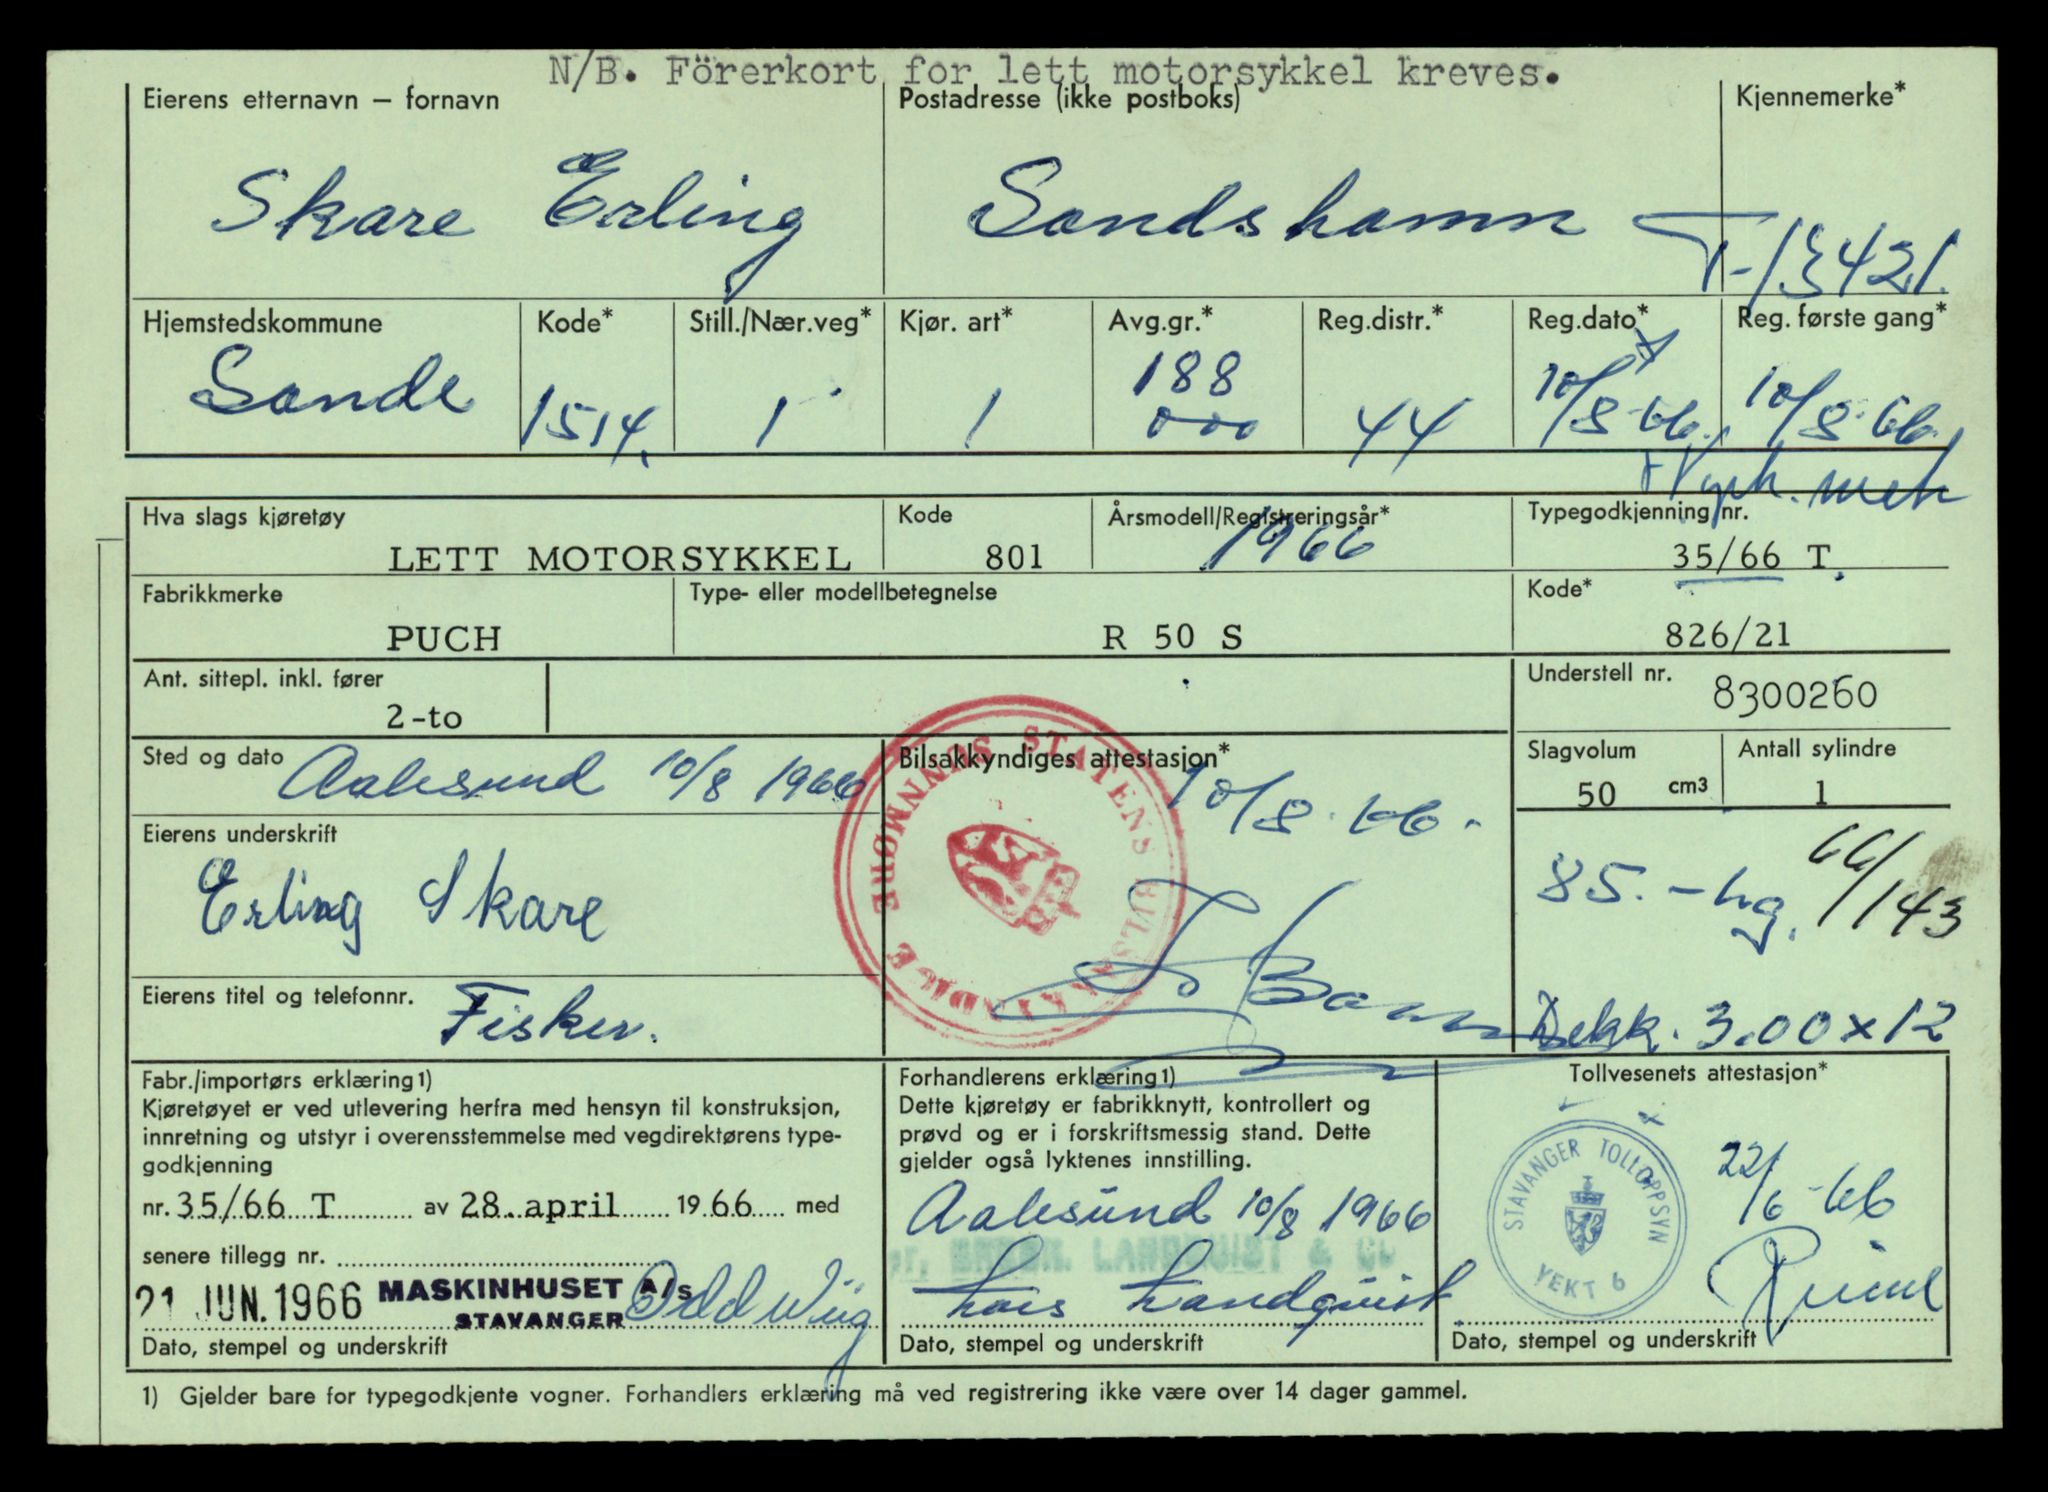 N/B. Förerkort for lett motorsykkel kreves.
Eierens etternavn – fornavn
Skare Erling
Postadresse (ikke postboks)
Sandshamn
Kjennemerke*
T-13421.
Hjemstedskommune
Sande
Kode*
1514.
Still./Nær.veg*
1
Kjør. art*
1
Avg.gr.*
188
000
Reg.distr.*
44
Reg.dato*
10/8-66.
Reg. første gang*
10/8-66.
Hva slags kjøretøy
LETT MOTORSYKKEL
Kode
801
Årsmodell/Registreringsår*
1966
Typegodkjenning nr.
35/66 T
Fabrikkmerke
PUCH
Type- eller modellbetegnelse
R 50 S
Kode*
826/21
Ant. sittepl. inkl. fører
2-to
Understell nr.
8300260
Slagvolum
50 cm3
Antall sylindre
1
Sted og dato
Aalesund 10/8 1966
Eierens underskrift
Erling Skare
Eierens titel og telefonnr.
Fisker.
Bilsakkyndiges attestasjon*
10/8-66.
STATENS BILSAKKYNDIGE SUNNMØRE
85.-hg. 66/143
Dekk. 3.00 x 12
Fabr./importørs erklæring1)
Kjøretøyet er ved utlevering herfra med hensyn til konstruksjon,
innretning og utstyr i overensstemmelse med vegdirektørens type-
godkjenning
nr. 35/66 T av 28. april 1966 med
senere tillegg nr.
21 JUN. 1966 MASKINHUSET A/S
STAVANGER Odd Wiig
Dato, stempel og underskrift
Forhandlerens erklæring1)
Dette kjøretøy er fabrikknytt, kontrollert og
prøvd og er i forskriftsmessig stand. Dette
gjelder også lyktenes innstilling.
Aalesund 10/8 1966
LANDQUIST & CO
Lars Landquist
Dato, stempel og underskrift
Tollvesenets attestasjon*
STAVANGER TOLLOPPSYN
VEKT 6
22/6-66
Dato, stempel og underskrift
1) Gjelder bare for typegodkjente vogner. Forhandlers erklæring må ved registrering ikke være over 14 dager gammel.